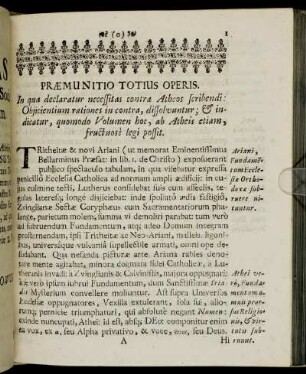 (o)
1
PRÆMUNITIO TOTIUS OPERIS.
In qua declaratur necessitas contra Atheos scribendi:
Objicientium rationes in contra, dissolvuntur; & in-
dicatur, quomodo Volumen hoc, ab Atheis etiam,
fructuosè legi possit.
TRitheitæ & novi Ariani (ut memorat Eminentissimus
Bellarminus Præfat: in lib. 1. de Christo) exposuerant
publico spectaculo tabulam, in qua videbatur expressa
Ecclesia Catholica ad normam ampli ædificij: in cu-
jus culmine tecti, Lutherus considebat suis cum asseclis, tegu-
las
Zvingliana Sectæ Coryphæus cum Sacramentariorum
phalange, parietum molem, summa vi demoliri parabat: tum verò
ad subruendum Fundamentum, atq; adeo Domum integram
prosternendam, ipsi Tritheitæ ac Neo-Ariani, malleis, ligoni-
bus, universaque vulcania supellectile armati, omni ope deside-
dabant. Qua nefandâ picturâ ante Ariana rabies deno-
tare mentita adspirabat, minora dogmata fidei Catholicæ, a Lu-
theranis invadi: à Zvinglianis & Calvinistis, majora oppugnari:
à se verò ipsum rubrui Fundamentum, dum Sanctissimæ
Mysterium convellere moliuntur. Ast supra Universos
Ecclesiæ oppugnatores, Vexilla extulerant, solo sibi, aliorumq;
pernicie triumphaturi, qui absolutè negant Numen:
exinde nuncupati, Athei: id est, absq; DEo: componitur enim
ea vox, ex a, seu Alpha privativo, & voce, seu Deus.
A
Hi
Ariani,
Fundamen-
tum Eccle-
siæ Ortho-
doxæ sub-
ruere ni-
tuntur.
Athei ve-
rò, Funda-
mentum om-
nis
Religio-
nis, &
sub-
ruunt.